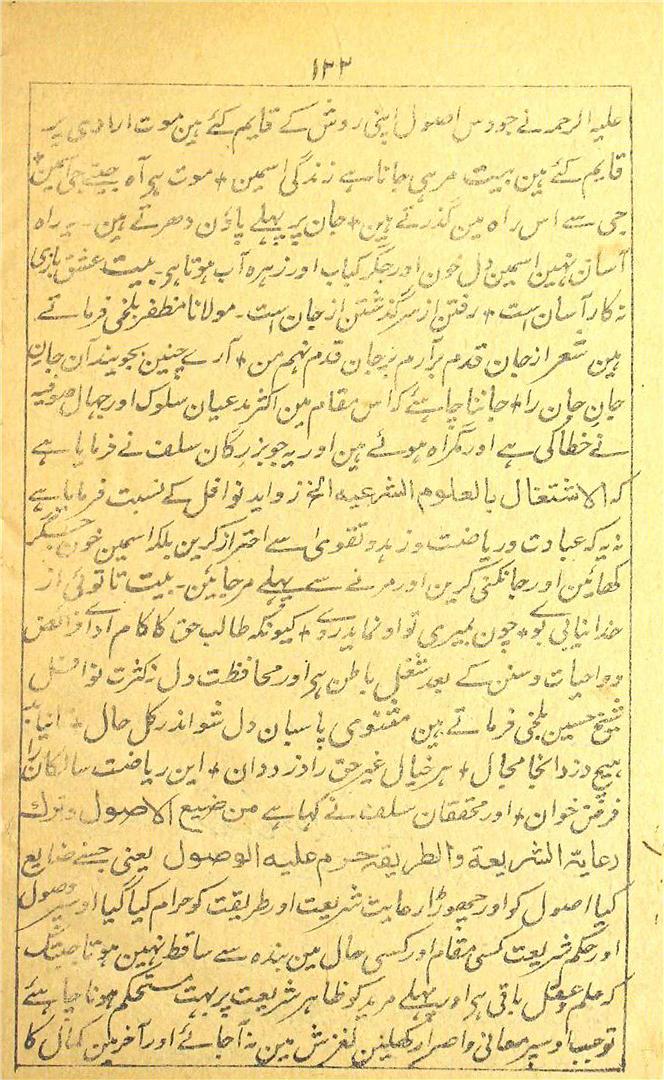 ۱۳۳
علیہ الرحمہ نے جو دس اصول اپنی روش کے قایم کئے ہین موت ارادی پر
قایم کئے ہین بیت مرہی جانا ہے زندگی اسمین + موت ہی آہ جیتے جی اسمین
جی سے اس راہ مین گذرتے ہین + جان پر پہلے پاؤن دھرتے ہین ۔ یہ راہ
آسان نہین اسمین دل خون اور جگر کباب اور زہرہ آب ہوتا ہی ۔ بیت عشق بازی
نہ کار آسان است + رفتن از سر گذشتن از جان است ۔ مولانا مظفر بلخی فرماتے
ہین شعر از جان قدم برآرم بر جان قدم نہم من + آرے چنین بجویند آن جان
جان جان را + جاننا چاہئے کہ اس مقام مین اکثر مدعیان سلوک اور جہال صوفیہ
نے خطا کی ہے اور گمراہ ہوئے ہین اور یہ جو بزرگان سلف نے فرمایا ہے
کہ الاشتغال بالعلوم الشرعیہ الخ زواید نوافل کے نسبت فرمایا ہے
نہ یہ کہ عبادت و ریاضت و زہد و تقوی اسے احتراز کرین بلکہ اسمین خون جگر
کھائین اور جانکنی کرین اور مرنے سے پہلے مر جائین ۔ بیت تا توئی از
خدا نیابی بو + چون بمیری تو او نماید رو + کیونکہ طالب حق کا کام ادائے فرائض
و واجبات و سنن کے بعد شغل باطن ہی اور محافظت دل نہ کثرت نوافل
شیخ حسین بلخی فرماتے ہین مثنوی پاسبان دل شو اندر کل حال + تا نیابد
ہیچ دزد انجا مجال + ہر خیال غیر حق را دزد دان + این ریاضت سالکان را
فرض خوان + اور محققان سلف نے کہا ہے من ضیع الاصول و ترک
رعایۃ الشریعۃ والطریقہ حرم علیہ الوصول یعنی جسنے ضایع
کیا اصول کو اور چھوڑا رعایت شریعت اور طریقت کو حرام کیا گیا اوسپر وصول
اور حکم شریعت کسی مقام اور کسی حال مین بندہ سے ساقط نہین ہوتا جبتک
کہ علم و عقل باقی ہی اور پہلے مرید کو ظاہر شریعت پر بہت مستحکم ہونا چاہئے
تو جب اوسپر معانی و اسرار کھلین لغزش مین نہ آجائے اور آخر مین کمال کا